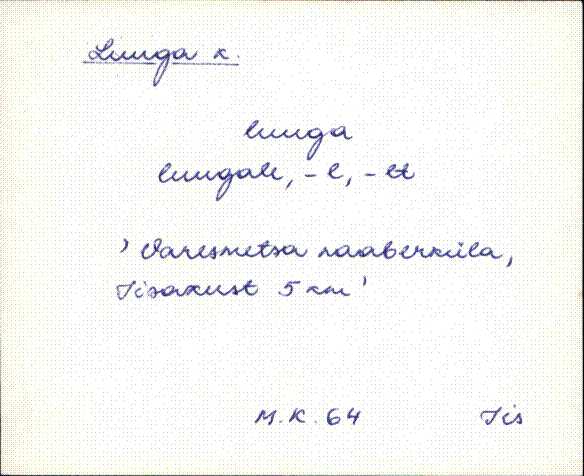 Luuga k.
luuga
luugale, -l, -lt
' Varesmetsa naaberküla,
Iisakust 5 km '
M.K. 64 Iis